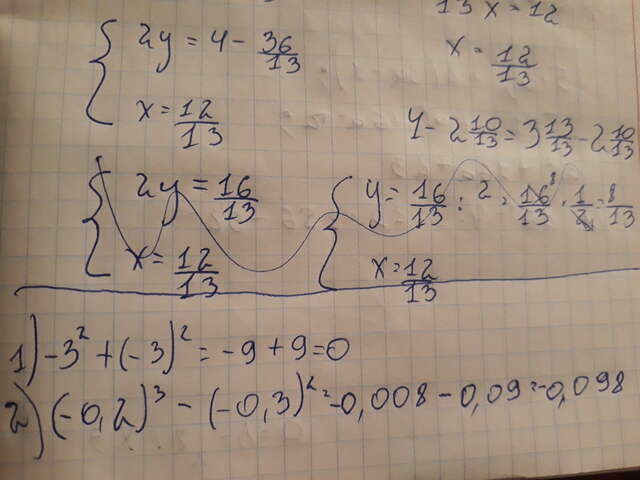 13 x = 12
x = 12/13
{ 2y = 4 - 36/13
x = 12/13
4 - 2 10/13 = 3 13/13 - 2 10/13
{ 2y = 16/13
x = 12/13
{ y = 16/13 : 2 = 16⁸/13 · 1/2 = 8/13
x = 12/13
1) -3² + (-3)² = -9 + 9 = 0
2) (-0,2)³ - (-0,3)² = -0,008 - 0,09 = -0,098